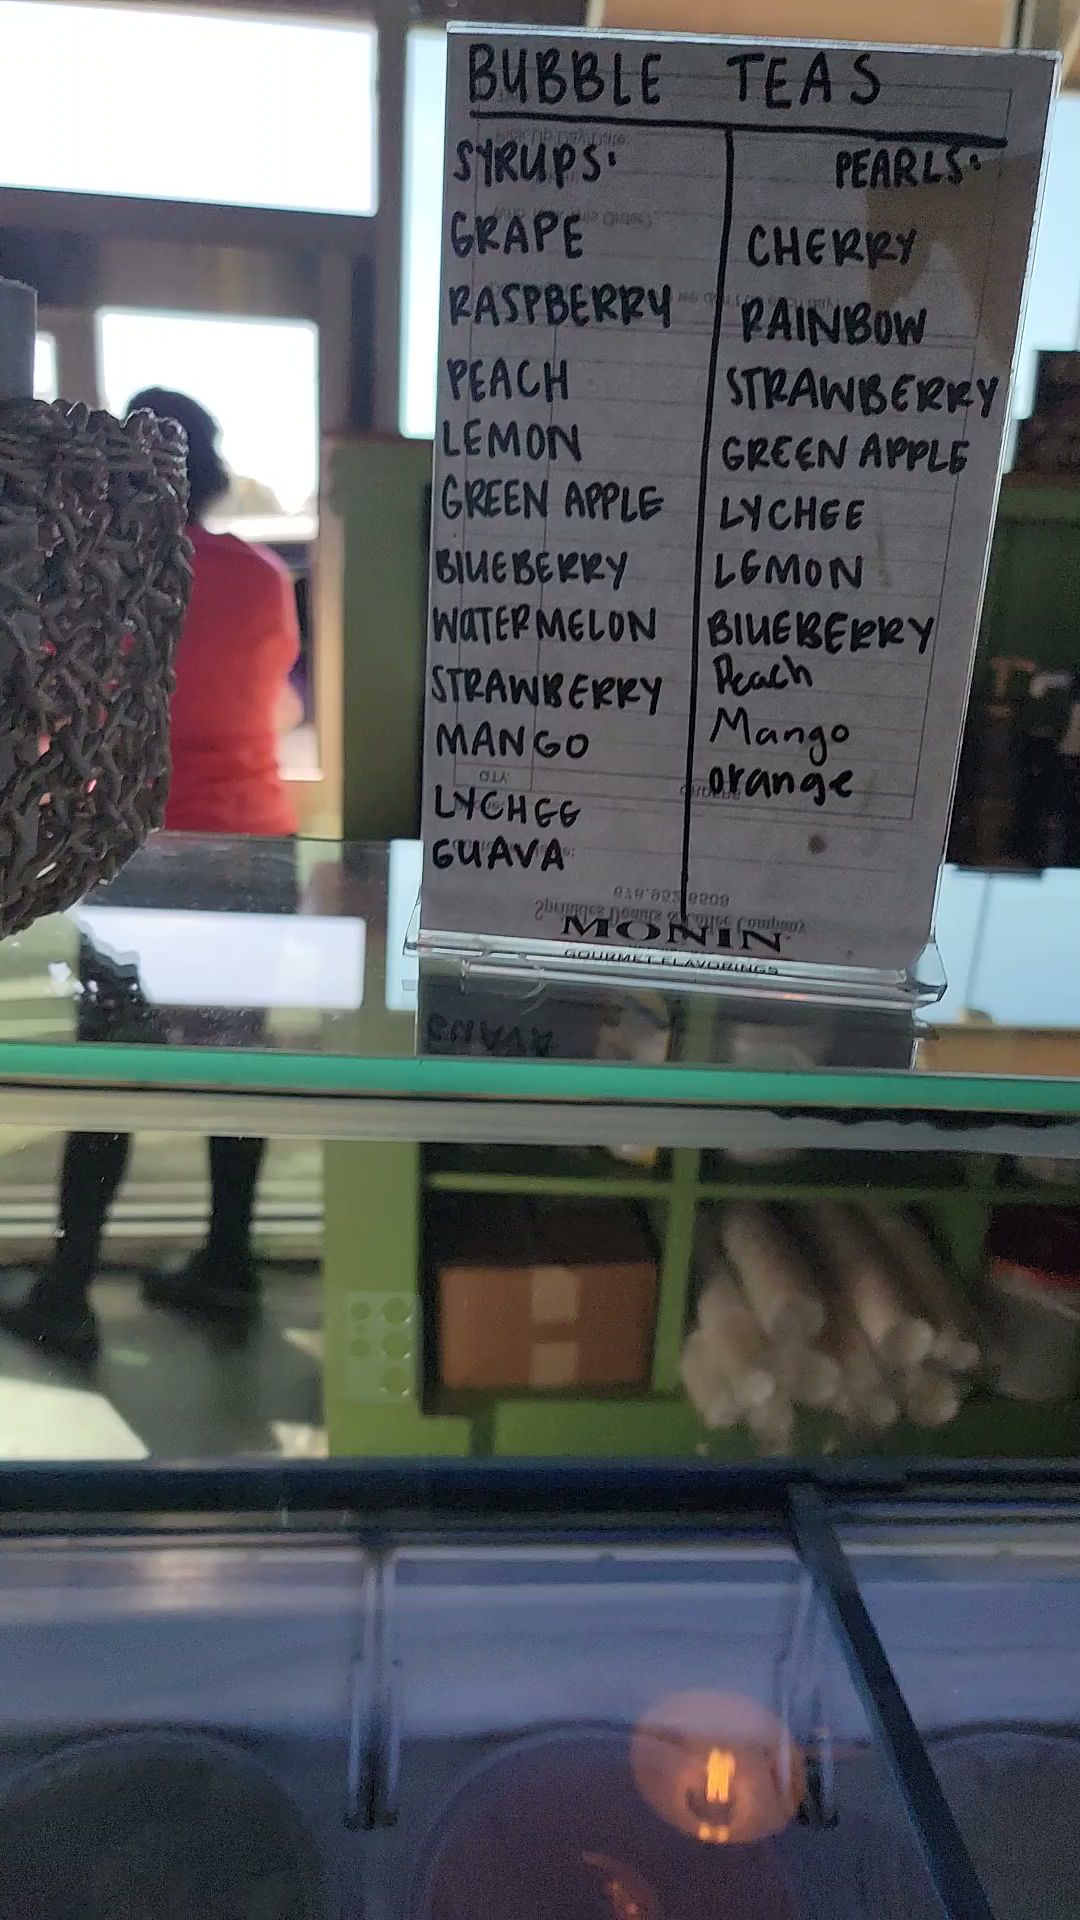 BUBBLE TEAS
SYRUPS:
GRAPE
RASPBERRY
PEACH
LEMON
GREEN APPLE
BLUEBERRY
WATERMELON
STRAWBERRY
MANGO
LYCHEE
GUAVA
PEARLS:
CHERRY
RAINBOW
STRAWBERRY
GREEN APPLE
LYCHEE
LEMON
BLUEBERRY
Peach
Mango
orange
Sprinkles Donuts & Coffee Company
MONIN
GOURMET FLAVORINGS